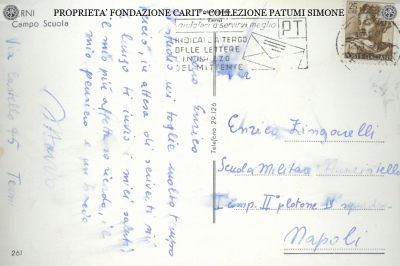 PROPRIETA' FONDAZIONE CARIT - COLLEZIONE PATUMI SIMONE
ERNI
Campo Scuola
aiutateci a servirvi meglio
INDICATE A TERGO
DELLE LETTERE
L'INDIRIZZO
DEL MITTENTE
PT
Caro Enrico,
lo studio mi toglie molto tempo
perciò, in attesa di scriverti più
a lungo ti invio i miei saluti
il mio più affettuoso ricordo, il
mio pensiero e un bacio
Via 45 Terni
Telefono 29.126
Enrico Zingarelli
Scuola Militare Nunziatella
I comp. II° plotone squadra
Napoli
261